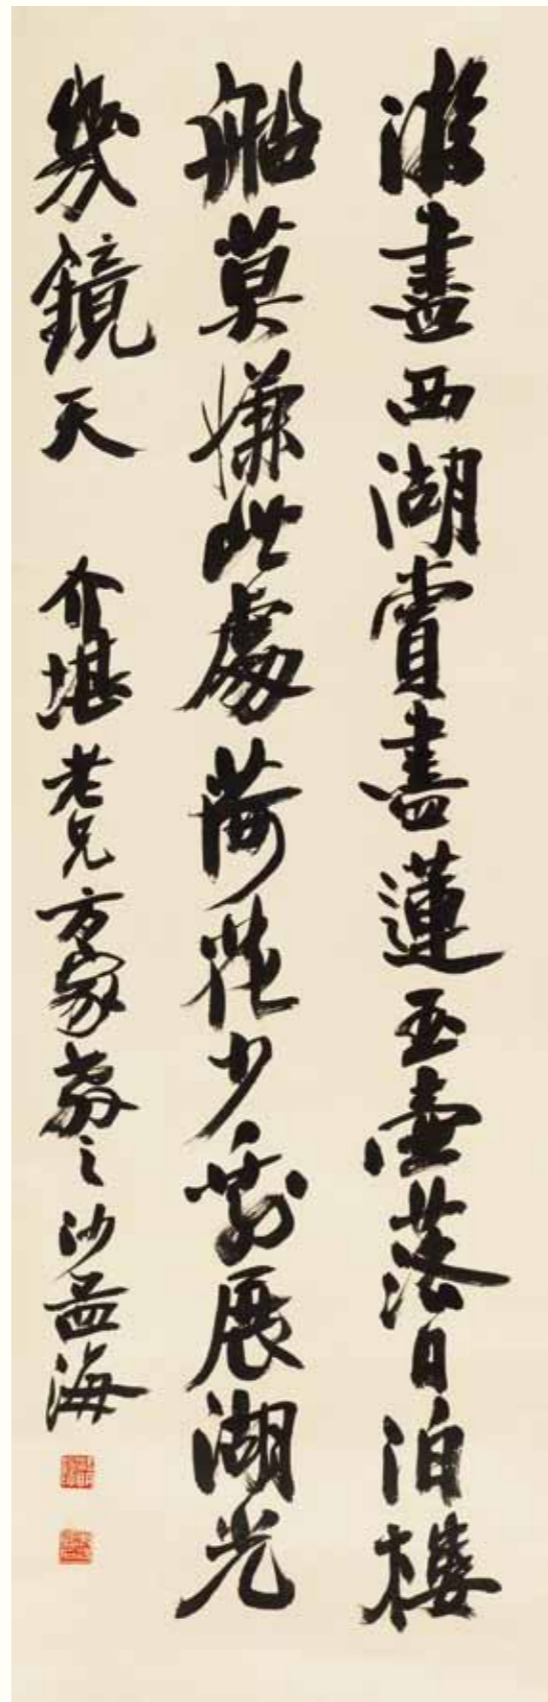 游盡西湖賞盡蓮玉壺落日泊樓
船莫嫌此處荷花少剩展湖光
幾鏡天 介堪老兄方家教之 沙孟海